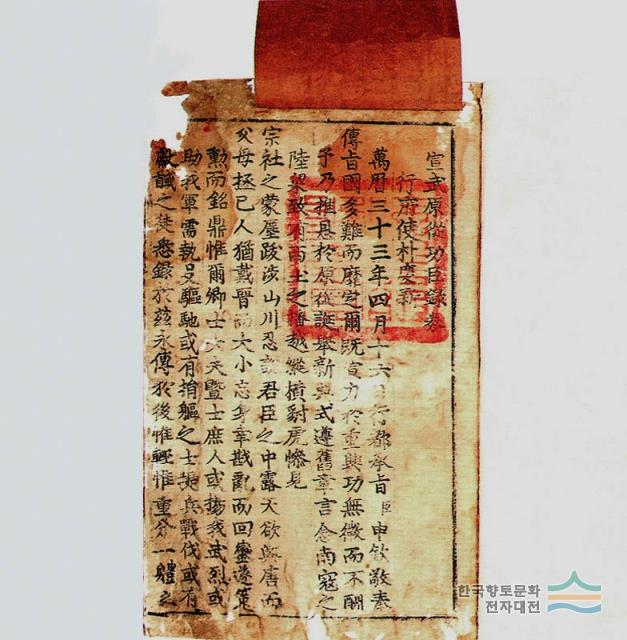 宣武原從功臣錄券
行府使朴慶新
萬曆三十三年四月十六日行都承旨臣申欽敬奉
傳旨國多難而靡定爾旣宣力於重興功無微而不酬
予乃推恩於原從誕擧新典式遵舊章言念南寇之
陸梁致有西土之播越縱橫豺虎慘見
宗社之蒙塵跋涉山川忍說君臣之中露天欲興唐而
父母拯已人猶戴晉而大小忘身幸戡亂而回鑾遂策
勳而銘鼎惟爾卿士大夫曁士庶人或揚我武烈或
助我軍需執殳驅馳或有捐軀之士揭兵戰伐或有
獻馘之徒悉錄於玆永傳於後惟輕惟重分一體之
한국향토문화
전자대전